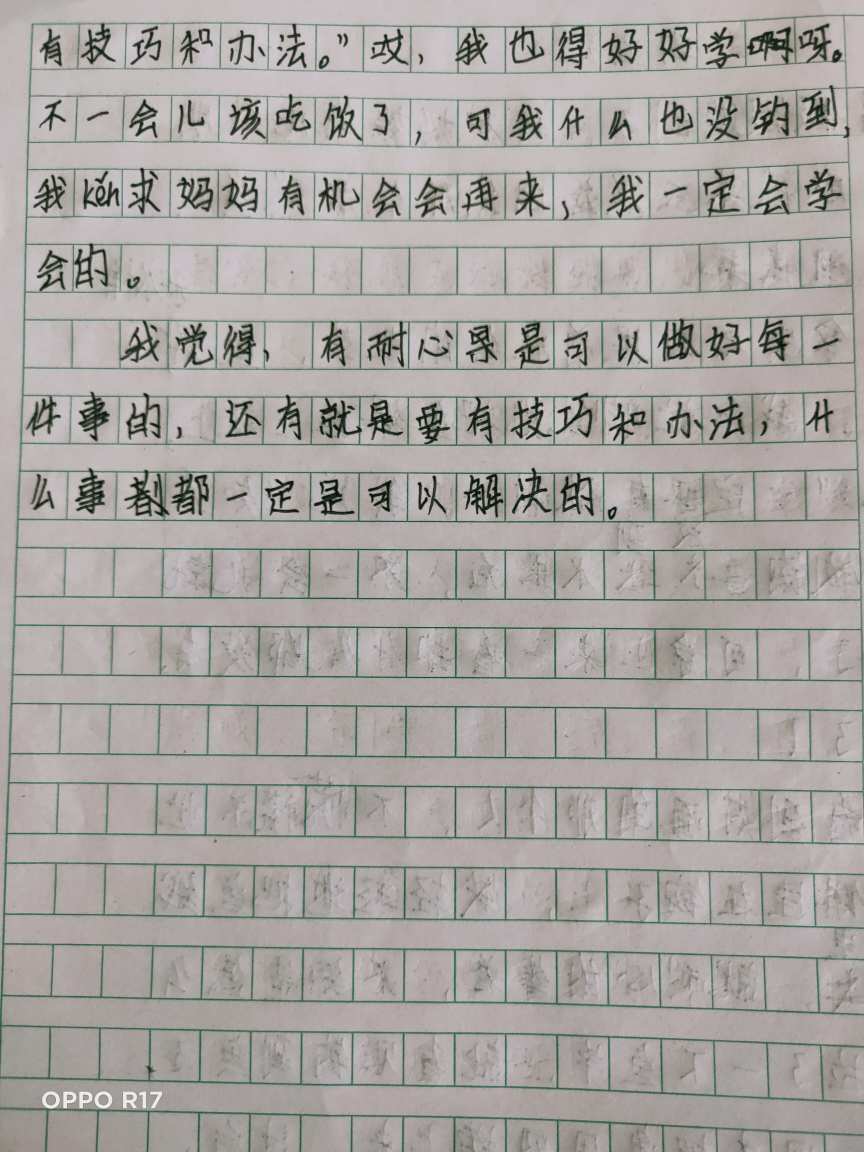 有技巧和办法。”哎，我也得好好学呀。
不一会儿该吃饭了，可我什么也没钓到，
我kěn求妈妈有机会会再来，我一定会学
会的。
我觉得，有耐心是可以做好每一
件事的，还有就是要有技巧和办法，什
么事都一定是可以解决的。
OPPO R17